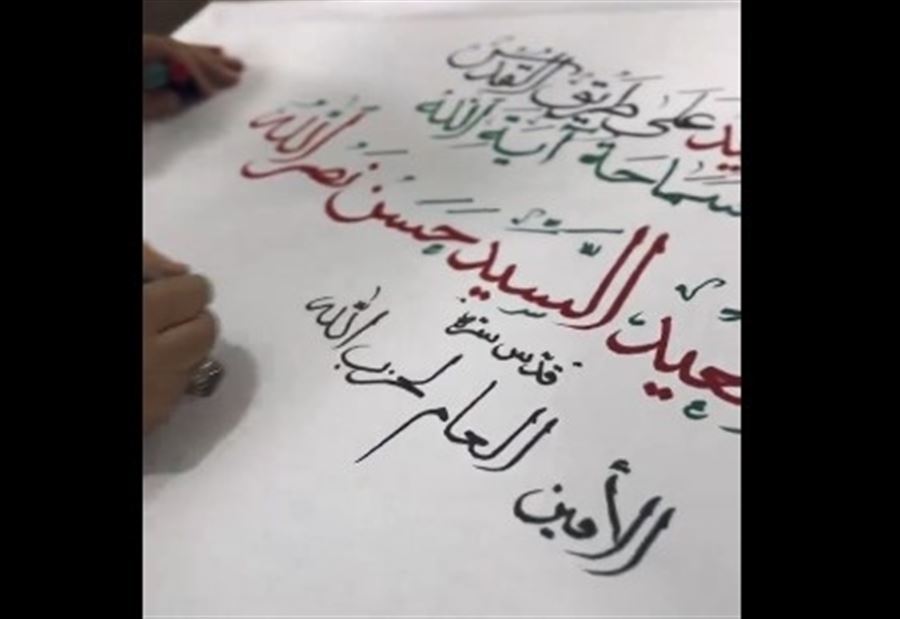 عَلَى طَرِيقِ القُدْسِ
سَمَاحَة آيَة الله
السَّيِّد حَسَن نَصْر الله
قدّس سرّه
الأمين العام لحزب الله